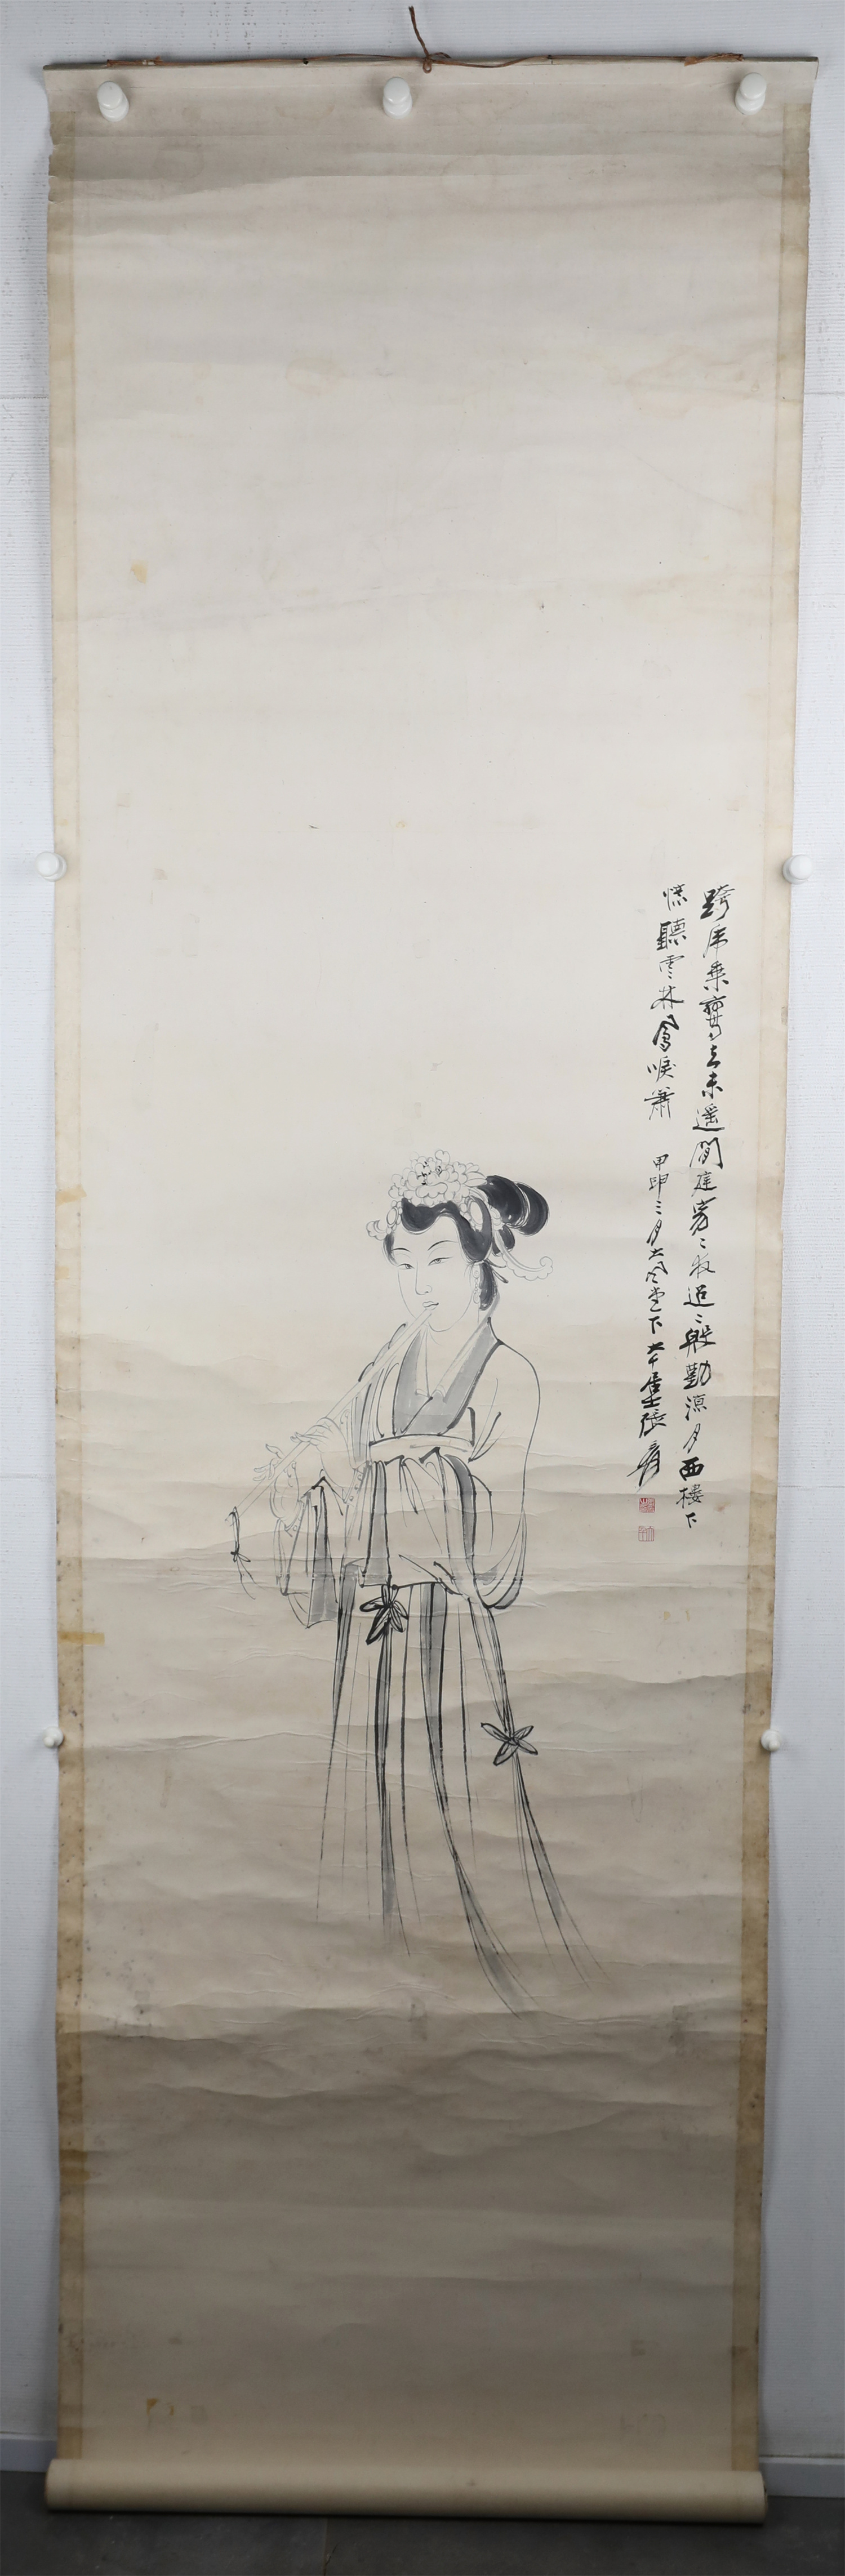 跨虎乘鸞去未遥閒庭芳二夜迢二殷勤涼月西楼下
慌聽雲林鳳唳簫 甲申三月大風堂下大千居士張爰